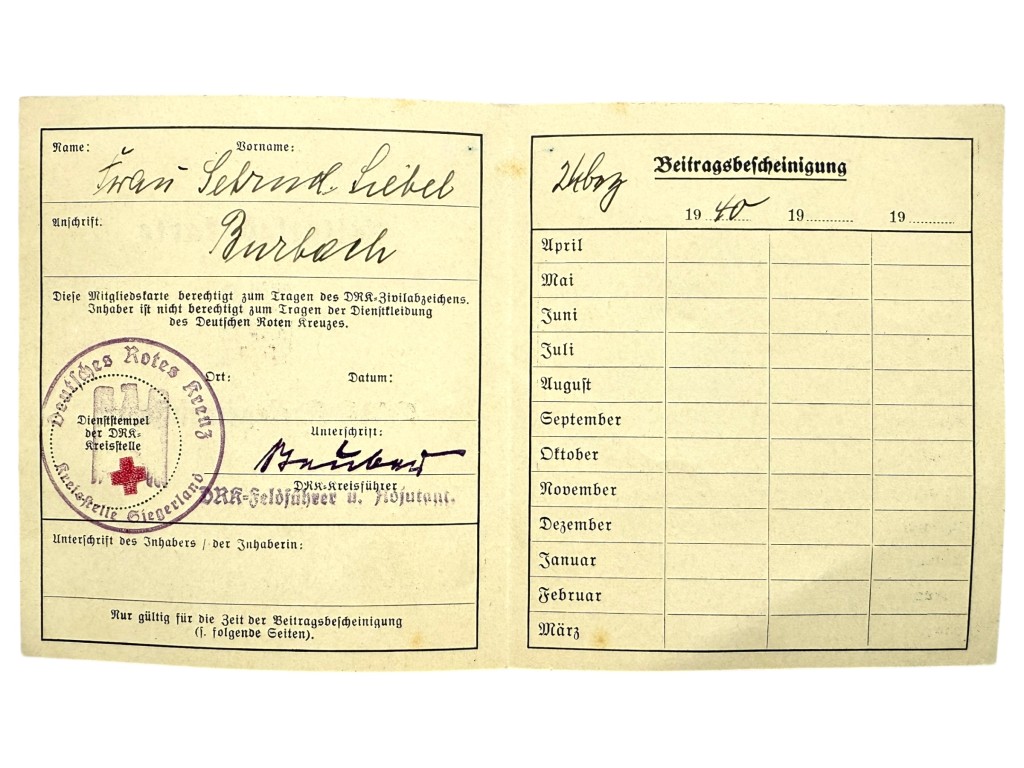 Name: Vorname:
Frau Liebel
Anschrift.
Burbach
Diese Mitgliedskarte berechtigt zum Tragen des DRK-Zivilabzeichens.
Inhaber ist nicht berechtigt zum Tragen der Dienstkleidung
des Deutschen Roten Kreuzes.
Deutsches Rotes Kreuz
Kreisstelle Siegerland
Dienststempel
der DRK-
Kreisstelle
Ort: Datum:
Unterschrift:
DRK-Kreisführer
DRK-Feldführer u. Adjutant.
Unterschrift des Inhabers / der Inhaberin:
Nur gültig für die Zeit der Beitragsbescheinigung
(s. folgende Seiten).
Beitragsbescheinigung
19 40 19 19
April
Mai
Juni
Juli
August
September
Oktober
November
Dezember
Januar
Februar
März